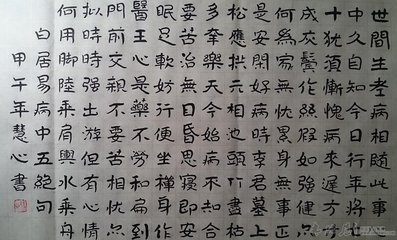 世間生老病相随此事心
中久自知今日行年將七
十猶須慚愧病来遲方寸
成灰鬢作絲假如强健亦
何為家無忧累身無事正
是安閑好病時李君墓上
松應拱元相池頭竹盡枯
多幸樂天今始病不知合
要苦治無目昏思寢即安
眠足軟妨行便坐禪身作
醫王心是藥不勞和扁到
門前交親不要苦相忧亦
擬時時强出游但有心情
何用脚陸乘肩輿水乘舟
白居易病中五絕句
甲午年慧心書